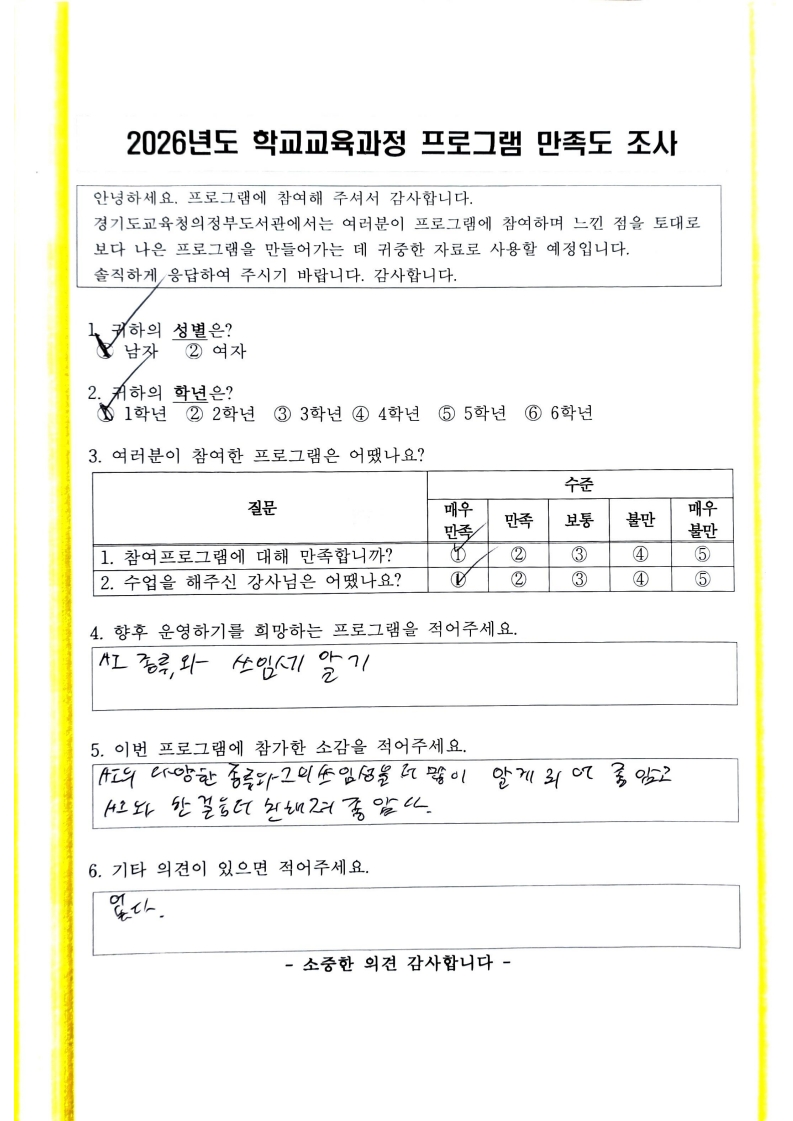 2026년도 학교교육과정 프로그램 만족도 조사
안녕하세요. 프로그램에 참여해 주셔서 감사합니다.
경기도교육청의정부도서관에서는 여러분이 프로그램에 참여하며 느낀 점을 토대로
보다 나은 프로그램을 만들어가는 데 귀중한 자료로 사용할 예정입니다.
솔직하게 응답하여 주시기 바랍니다. 감사합니다.
1. 귀하의 성별은?
① 남자 ② 여자
2. 귀하의 학년은?
① 1학년 ② 2학년 ③ 3학년 ④ 4학년 ⑤ 5학년 ⑥ 6학년
3. 여러분이 참여한 프로그램은 어땠나요?
질문 수준
매우 만족 만족 보통 불만 매우 불만
1. 참여프로그램에 대해 만족합니까? ① ② ③ ④ ⑤
2. 수업을 해주신 강사님은 어땠나요? ① ② ③ ④ ⑤
4. 향후 운영하기를 희망하는 프로그램을 적어주세요.
AI 종류,와 쓰임세 알기
5. 이번 프로그램에 참가한 소감을 적어주세요.
AI의 다양한 종류와 그의 쓰임성을 더 많이 알게 되어 좋았고
AI와 한 걸음 더 친해져 좋았다.
6. 기타 의견이 있으면 적어주세요.
없다.
- 소중한 의견 감사합니다 -